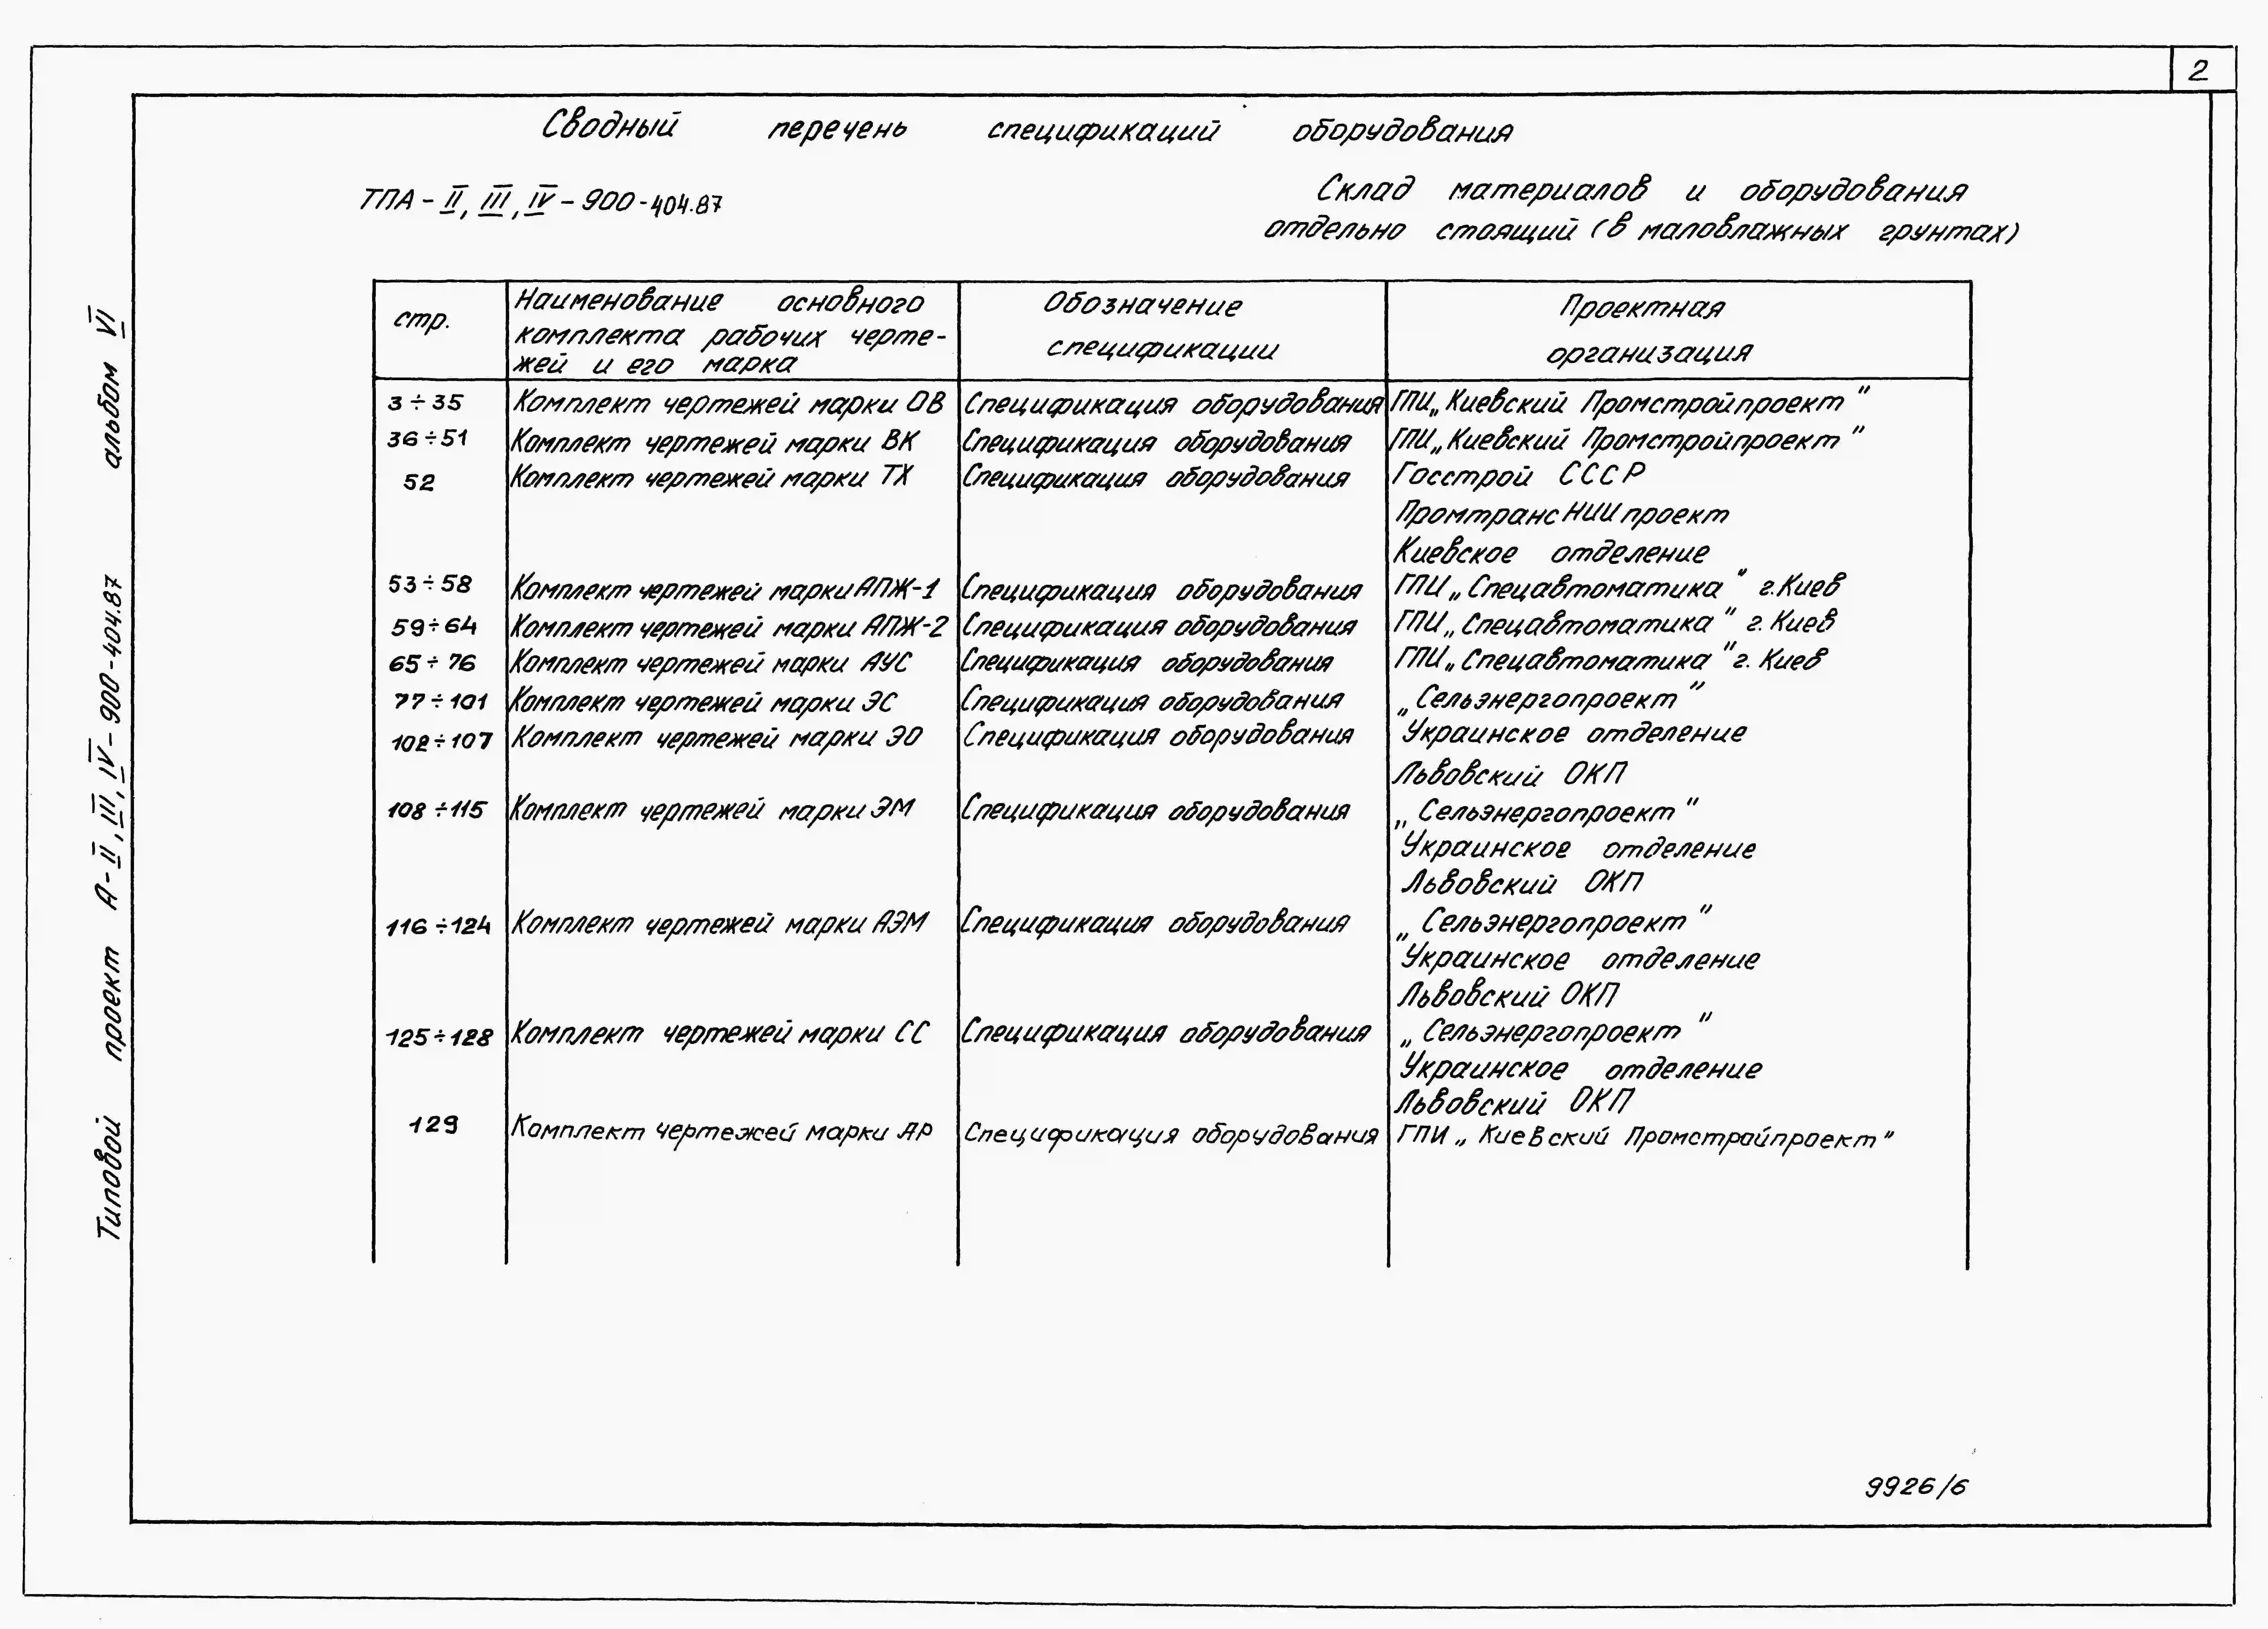 2
Сводный перечень спецификаций оборудования
ТПА - II, III, IV - 900 - 404.87
Склад материалов и оборудования
отдельно стоящий (в маловлажных грунтах)
стр.
Наименование основного
комплекта рабочих черте-
жей и его марка
Обозначение
спецификации
Проектная
организация
3 ÷ 35 Комплект чертежей марки ОВ Спецификация оборудования ГПИ „Киевский Промстройпроект"
36 ÷ 51 Комплект чертежей марки ВК Спецификация оборудования ГПИ „Киевский Промстройпроект"
52 Комплект чертежей марки ТХ Спецификация оборудования Госстрой СССР
ПромтрансНИИпроект
Киевское отделение
53 ÷ 58 Комплект чертежей марки АПЖ-1 Спецификация оборудования ГПИ „Спецавтоматика" г.Киев
59 ÷ 64 Комплект чертежей марки АПЖ-2 Спецификация оборудования ГПИ „Спецавтоматика" г. Киев
65 ÷ 76 Комплект чертежей марки АУС Спецификация оборудования ГПИ „Спецавтоматика" г. Киев
77 ÷ 101 Комплект чертежей марки ЭС Спецификация оборудования „Сельэнергопроект"
102 ÷ 107 Комплект чертежей марки ЭО Спецификация оборудования Украинское отделение
Львовский ОКП
108 ÷ 115 Комплект чертежей марки ЭМ Спецификация оборудования „Сельэнергопроект"
Украинское отделение
Львовский ОКП
116 ÷ 124 Комплект чертежей марки АЭМ Спецификация оборудования „Сельэнергопроект"
Украинское отделение
Львовский ОКП
125 ÷ 128 Комплект чертежей марки СС Спецификация оборудования „Сельэнергопроект"
Украинское отделение
Львовский ОКП
129 Комплект чертежей марки АР Спецификация оборудования ГПИ „Киевский Промстройпроект"
Типовой проект А-II, III, IV-900-404.87 альбом VI
9926/6